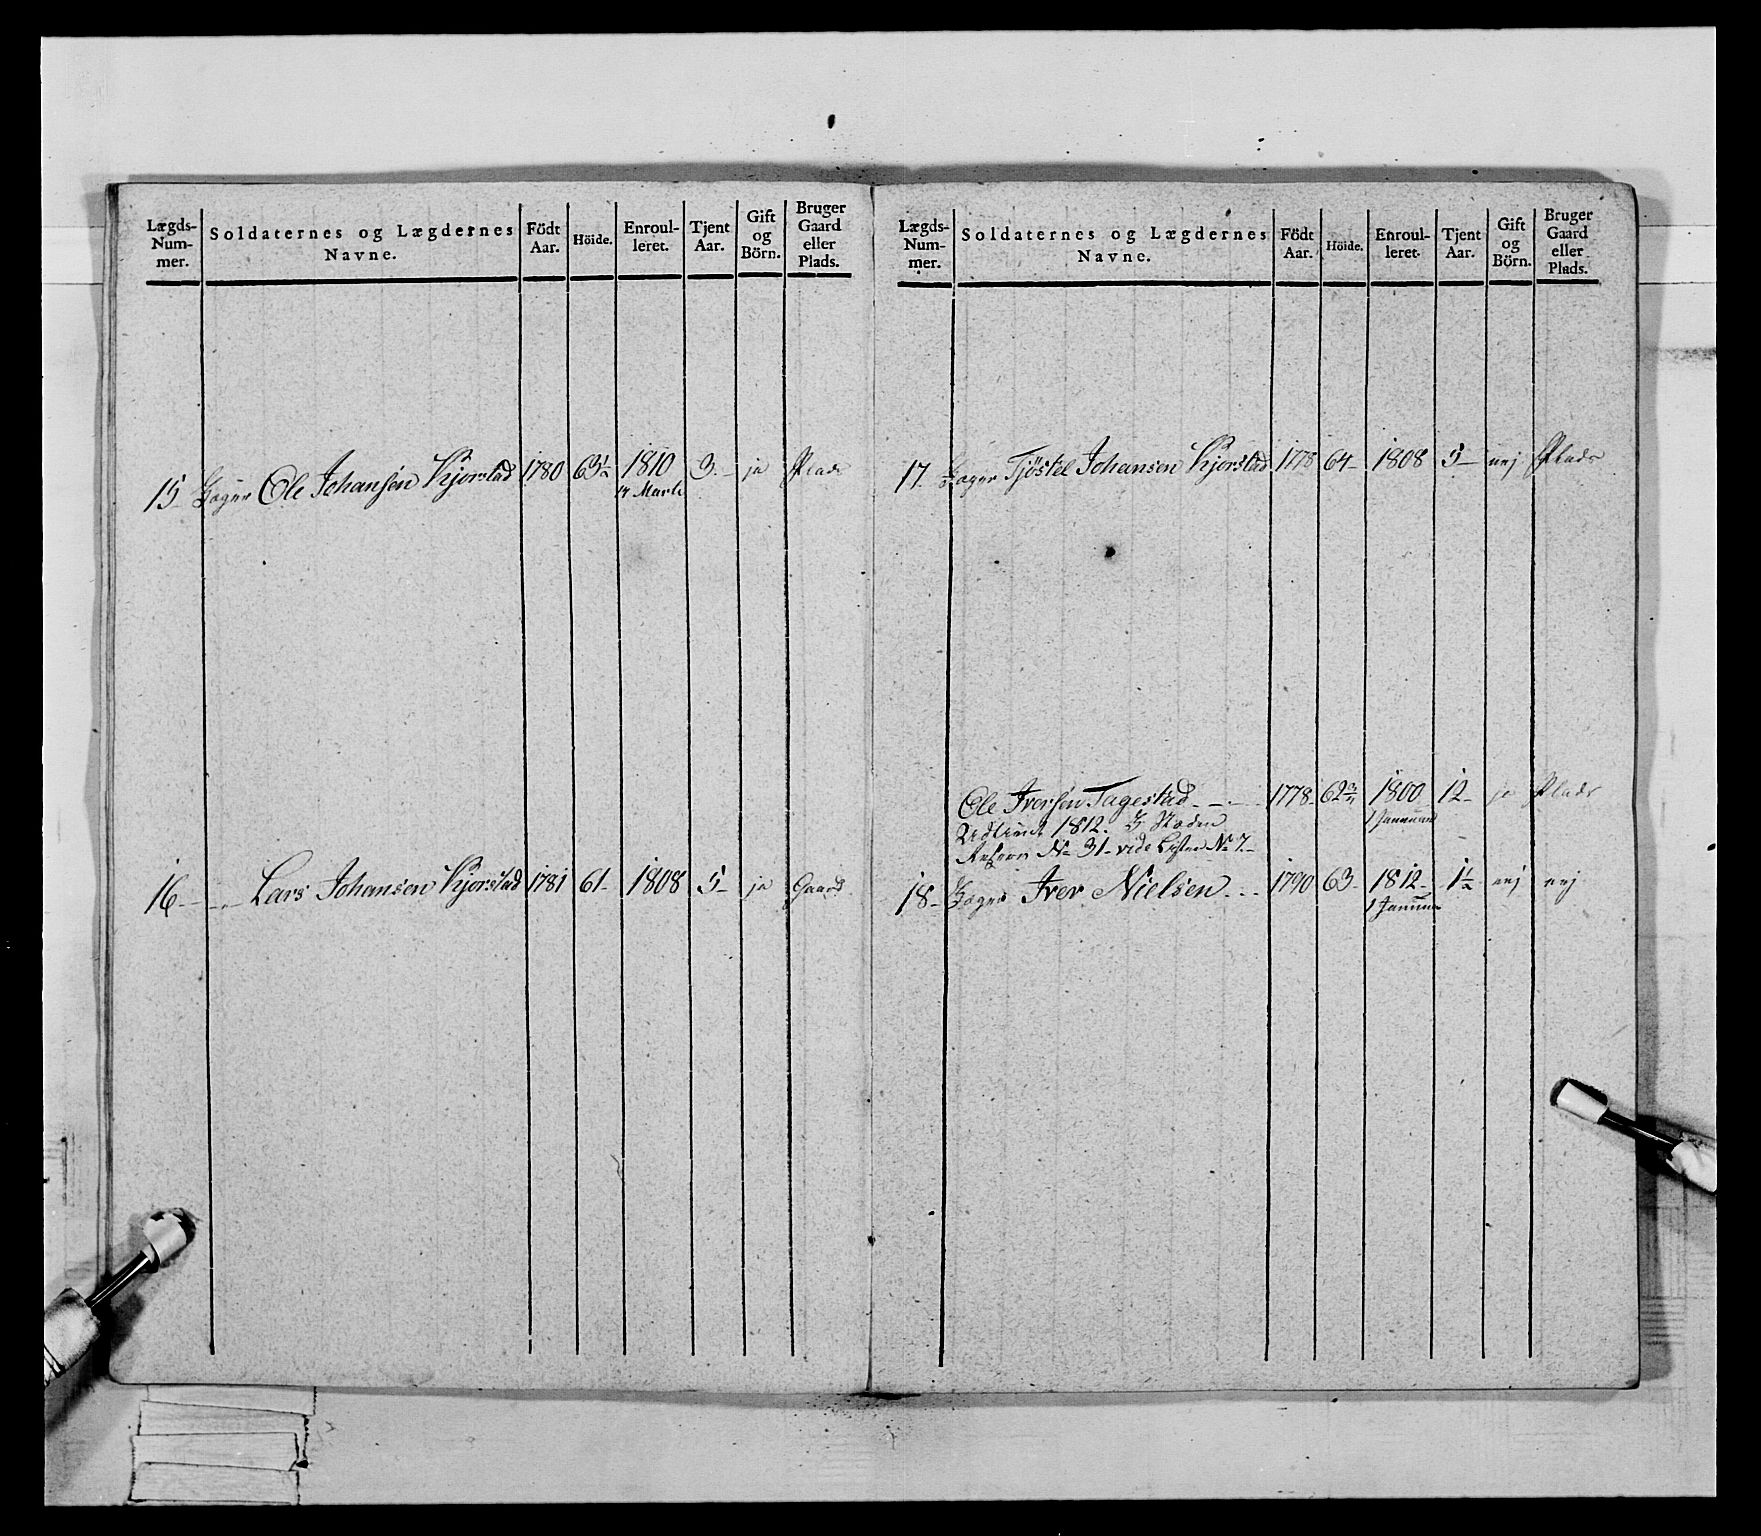 Lægds-
Num-
mer.
Soldaternes og Lægdernes
Navne.
Födt
Aar.
Höide.
Enroul-
leret.
Tjent
Aar.
Gift
og
Börn.
Bruger
Gaard
eller
Plads.
15 Ole Johansön Kjorstad 1780 63½ 1810 3 ja Plads
16 Lars Johansen Kjorstad 1781 61 1808 5 ja Gaard
Lægds-
Num-
mer.
Soldaternes og Lægdernes
Navne.
Födt
Aar.
Höide.
Enroul-
leret.
Tjent
Aar.
Gift
og
Börn.
Bruger
Gaard
eller
Plads.
17 Tjöstel Johansen Kjorstad 1778 64 1808 5 nej Plads
Ole Iversön Tagestad 1778 62¾ 1800 12 ja Plads
1 Januar
1812.
No 31 vide Listen No 7
18 Iver Nielsen 1790 63 1812 1½ nej nej
1 Januar